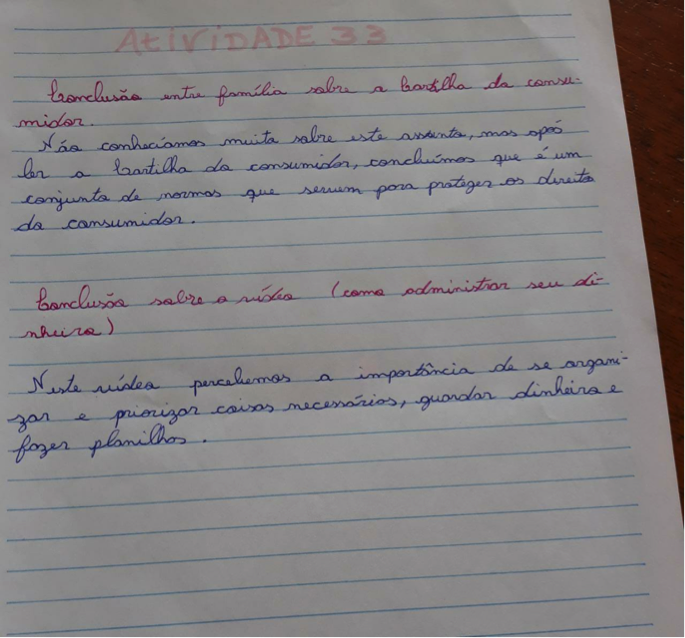 AtiViDADE 33
Conclusão entre família sobre a Cartilha do consu-
midor.
Não conhecíamos muito sobre este assunto, mas após
ler a Cartilha do consumidor, concluímos que é um
conjunto de normas que servem para proteger os direito
do consumidor.
Conclusão sobre o vídeo (como administrar seu di-
nheiro)
Neste vídeo percebemos a importância de se organi-
zar e priorizar coisas necessárias, guardar dinheiro e
fazer planilhas.